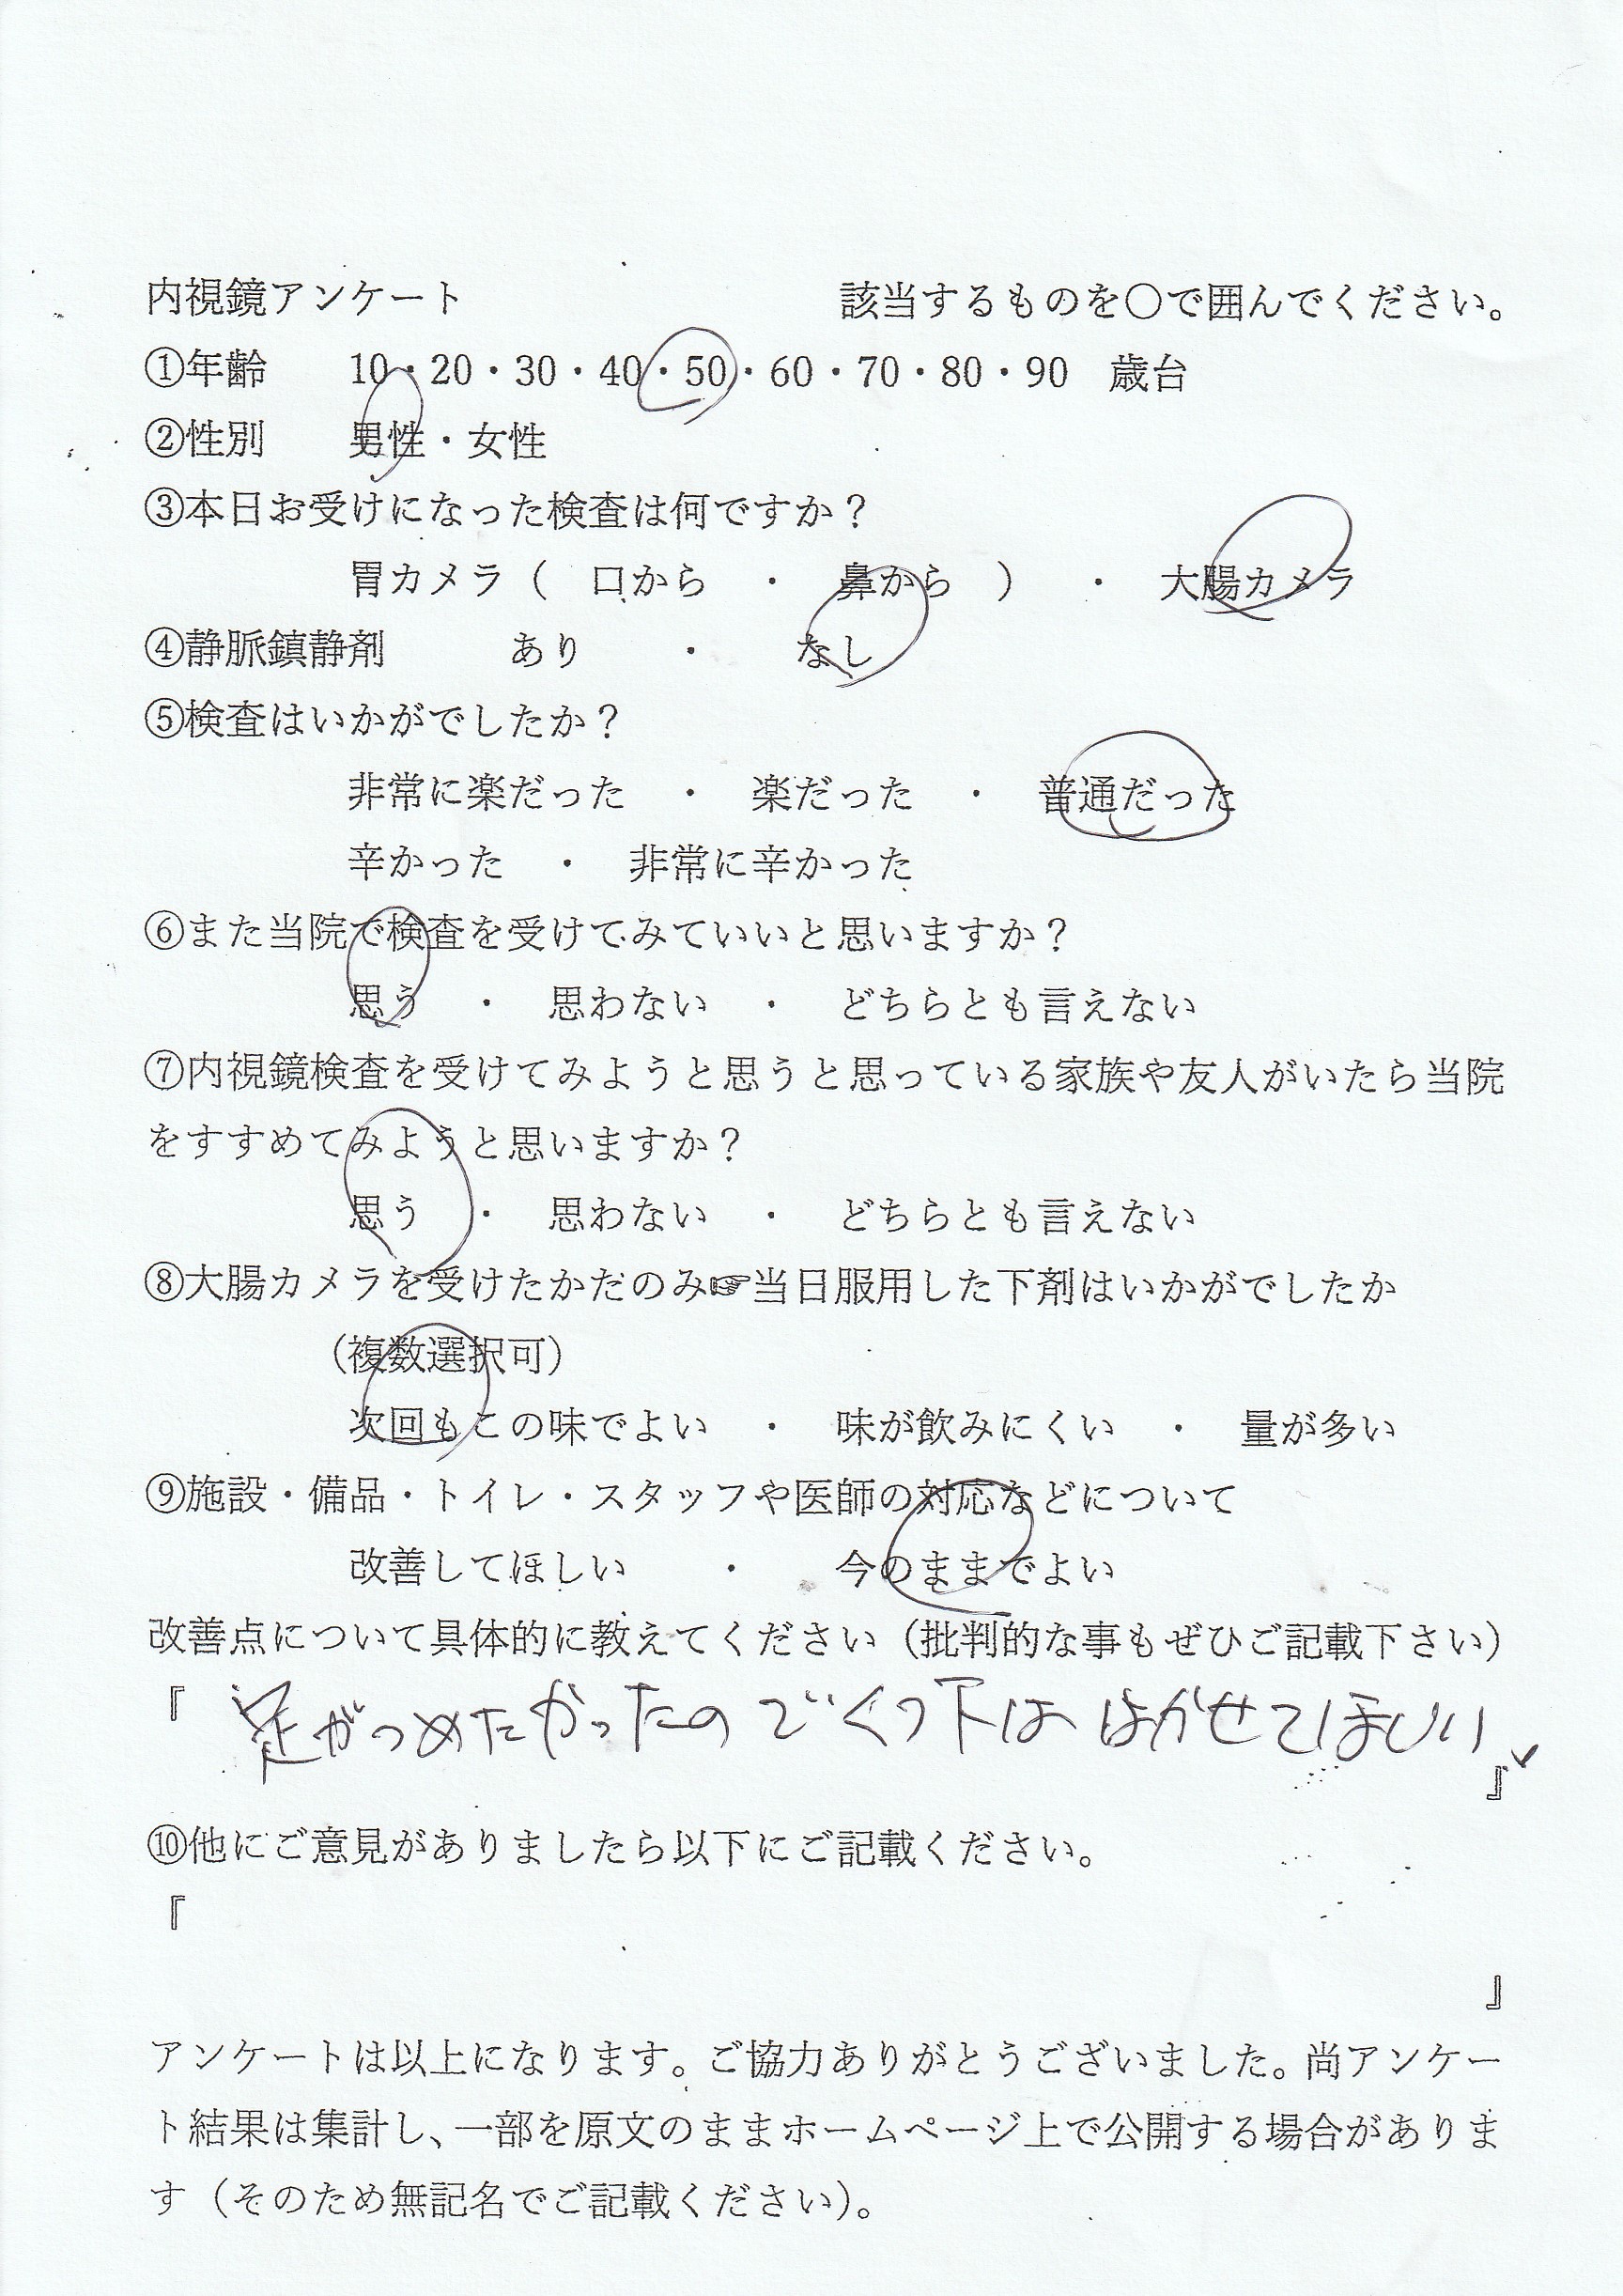 内視鏡アンケート　　該当するものを〇で囲んでください。
①年齢　10・20・30・40・50・60・70・80・90　歳台
②性別　男性・女性
③本日お受けになった検査は何ですか？
胃カメラ（　口から　・　鼻から　）　・　大腸カメラ
④静脈鎮静剤　あり　・　なし
⑤検査はいかがでしたか？
非常に楽だった　・　楽だった　・　普通だった
辛かった　・　非常に辛かった
⑥また当院で検査を受けてみていいと思いますか？
思う　・　思わない　・　どちらとも言えない
⑦内視鏡検査を受けてみようと思うと思っている家族や友人がいたら当院
をすすめてみようと思いますか？
思う　・　思わない　・　どちらとも言えない
⑧大腸カメラを受けたかだのみ☞当日服用した下剤はいかがでしたか
（複数選択可）
次回もこの味でよい　・　味が飲みにくい　・　量が多い
⑨施設・備品・トイレ・スタッフや医師の対応などについて
改善してほしい　・　今のままでよい
改善点について具体的に教えてください（批判的な事もぜひご記載下さい）
『　足がつめたかったのでくつ下ははかせてほしい
』
⑩他にご意見がありましたら以下にご記載ください。
『
』
アンケートは以上になります。ご協力ありがとうございました。尚アンケー
ト結果は集計し、一部を原文のままホームページ上で公開する場合がありま
す（そのため無記名でご記載ください）。